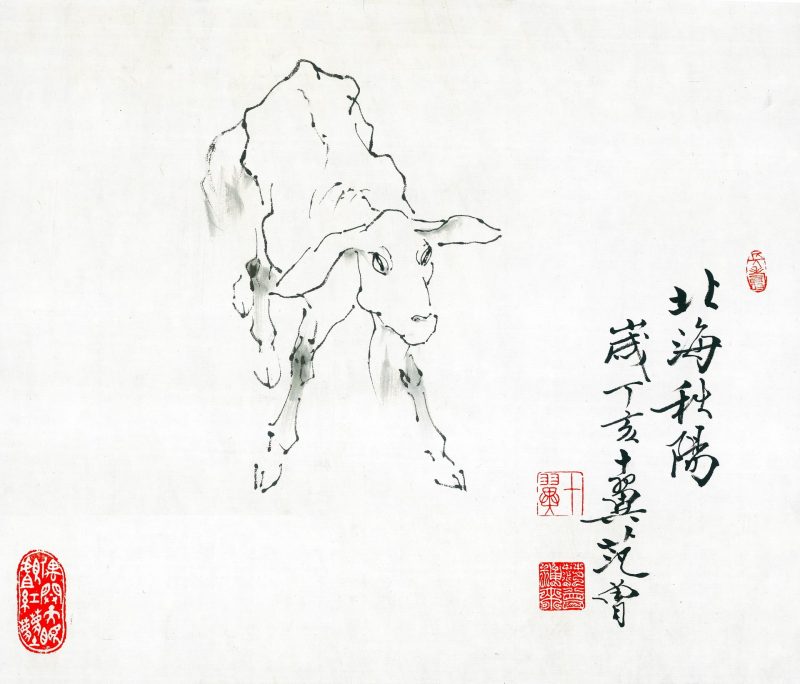 北海秋陽
歲丁亥十翼范曾
十翼